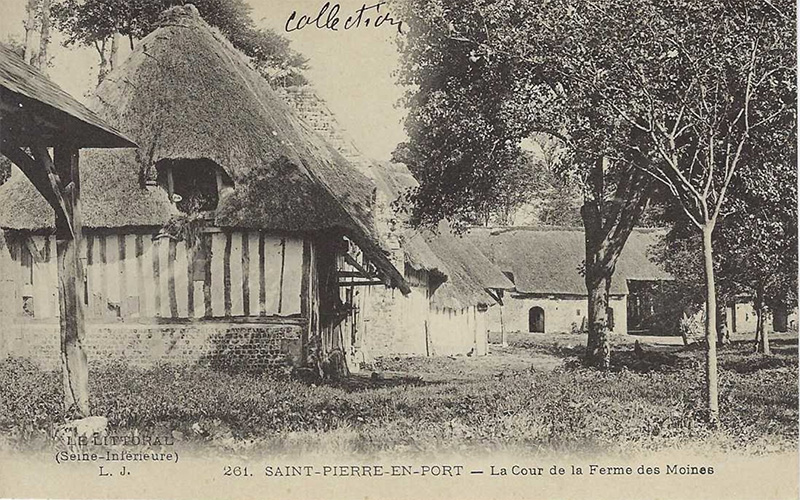 collection
LE LITTORAL
(Seine-Inférieure)
L. J.
261. SAINT-PIERRE-EN-PORT — La Cour de la Ferme des Moines